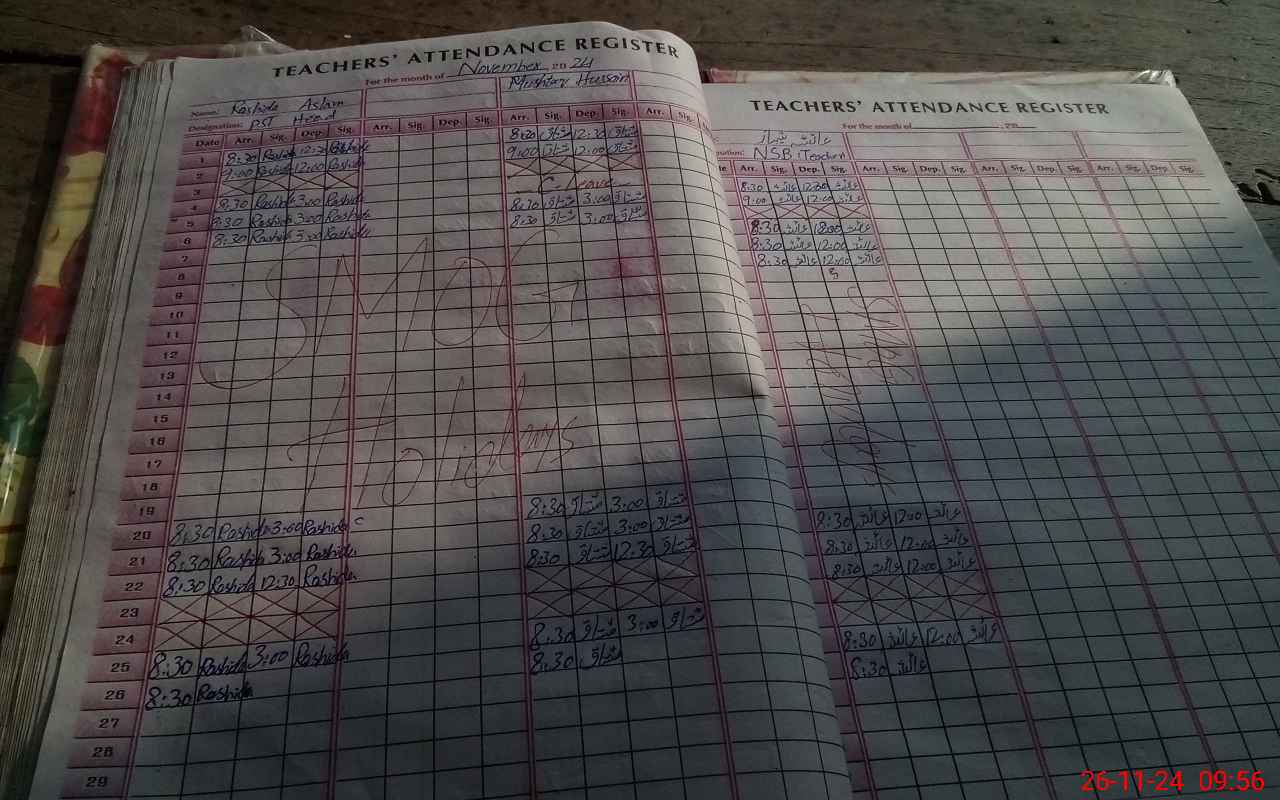 TEACHERS' ATTENDANCE REGISTER
For the month of November 2024
Name: Rashida Aslam
Mushtaq Hussain
Designation: PST Head
Date Arr. Sig. Dep. Sig. Arr. Sig. Dep. Sig. Arr. Sig. Dep. Sig.
1 8:30 Rashida 12:30 Rashida 8:30 مشتاق 12:30 مشتاق
2 9:00 Rashida 12:00 Rashida 9:00 مشتاق 12:00 مشتاق
3
4 8:30 Rashida 3:00 Rashida C-Leave
5 8:30 Rashida 3:00 Rashida 8:30 مشتاق 3:00 مشتاق
6 8:30 Rashida 3:00 Rashida 8:30 مشتاق 3:00 مشتاق
7
8
9
10
11
SMOG
12
13
14
15
16
Holidays
17
18
19
20 8:30 Rashida 3:00 Rashida 8:30 مشتاق 3:00 مشتاق
21 8:30 Rashida 3:00 Rashida 8:30 مشتاق 3:00 مشتاق
22 8:30 Rashida 12:30 Rashida 8:30 مشتاق 12:30 مشتاق
23
24
25 8:30 Rashida 3:00 Rashida 8:30 مشتاق 3:00 مشتاق
26 8:30 Rashida 8:30 مشتاق
27
28
29
TEACHERS' ATTENDANCE REGISTER
For the month of
NSB (Teacher)
Arr. Sig. Dep. Sig. Arr. Sig. Dep. Sig. Arr. Sig. Dep. Sig. Arr. Sig. Dep. Sig.
8:30 12:30
9:00 12:00
8:30 12:00
8:30 12:00
8:30 12:00
8:30 12:00
8:30 12:00
8:30 12:00
8:30 12:00
8:30
26-11-24 09:56